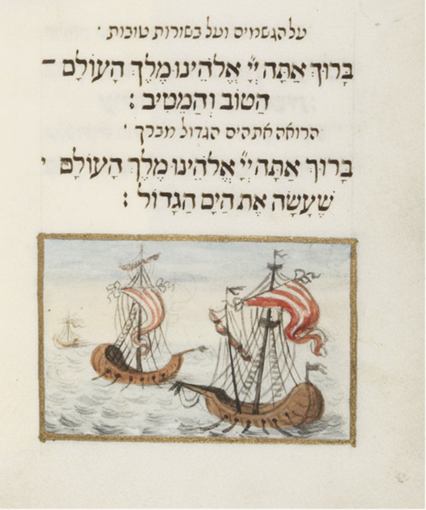 על הגשמים ועל בשורות טובות ·
בָּרוּךְ אַתָּה יְיָ אֱלֹהֵינוּ מֶלֶךְ הָעוֹלָם
הַטּוֹב וְהַמֵּטִיב :
הרואה את הים הגדול מברך
בָּרוּךְ אַתָּה יְיָ אֱלֹהֵינוּ מֶלֶךְ הָעוֹלָם
שֶׁעָשָׂה אֶת הַיָּם הַגָּדוֹל :